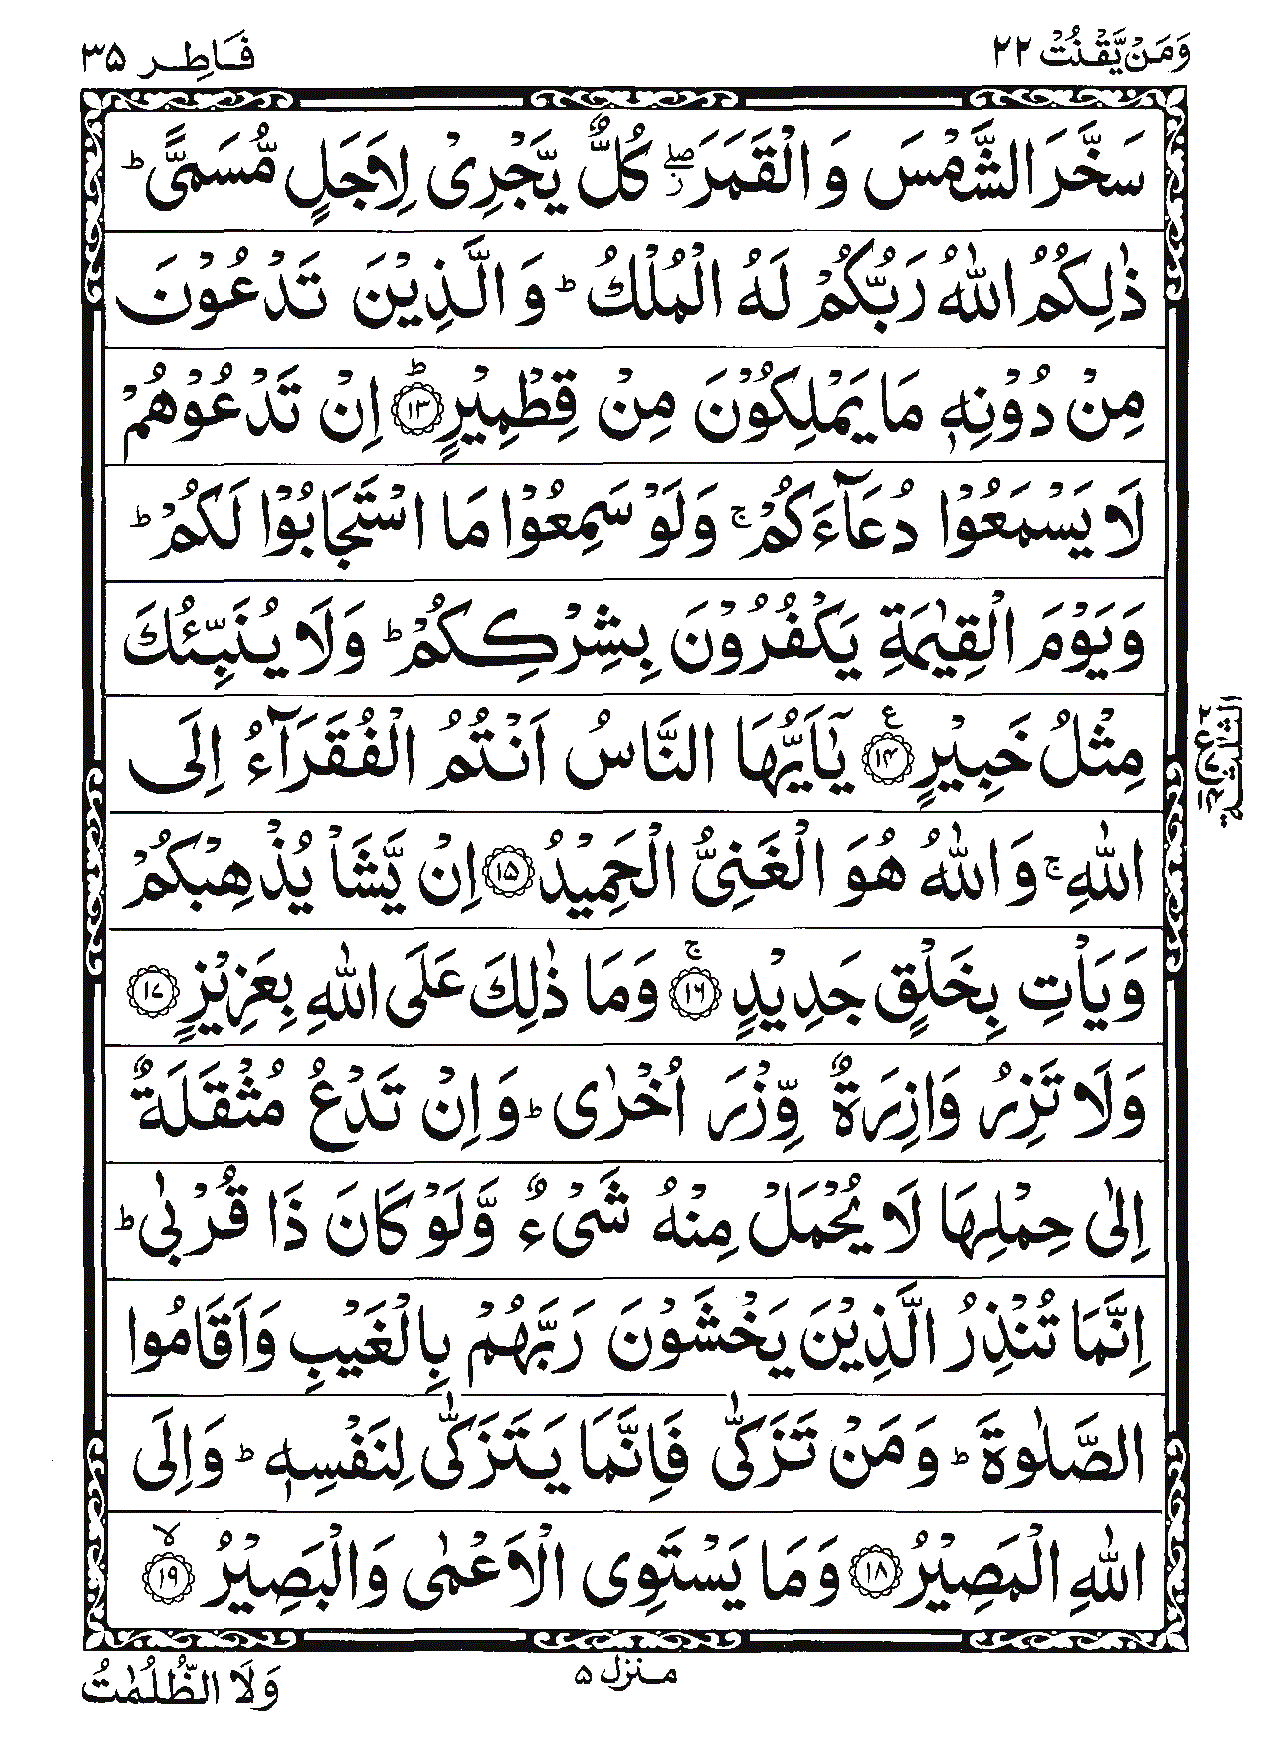 وَمَنْ يَّقْنُتْ ٢٢
فَاطِر ٣٥
سَخَّرَ الشَّمْسَ وَ الْقَمَرَ ۖز كُلٌّ يَّجْرِىْ لِاَجَلٍ مُّسَمًّى ؕ
ذٰلِكُمُ اللّٰهُ رَبُّكُمْ لَهُ الْمُلْكُ ؕ وَ الَّذِيْنَ تَدْعُوْنَ
مِنْ دُوْنِهٖ مَا يَمْلِكُوْنَ مِنْ قِطْمِيْرٍ ؕ ﴿١٣﴾ اِنْ تَدْعُوْهُمْ
لَا يَسْمَعُوْا دُعَآءَكُمْ ۚ وَلَوْ سَمِعُوْا مَا اسْتَجَابُوْا لَكُمْ ؕ
وَيَوْمَ الْقِيٰمَةِ يَكْفُرُوْنَ بِشِرْكِكُمْ ؕ وَلَا يُنَبِّئُكَ
مِثْلُ خَبِيْرٍ ﴿١٤﴾ ع يٰۤاَيُّهَا النَّاسُ اَنْتُمُ الْفُقَرَآءُ اِلَى
اللّٰهِ ۚ وَاللّٰهُ هُوَ الْغَنِىُّ الْحَمِيْدُ ﴿١٥﴾ اِنْ يَّشَاْ يُذْهِبْكُمْ
وَيَاْتِ بِخَلْقٍ جَدِيْدٍ ۚ ﴿١٦﴾ وَمَا ذٰلِكَ عَلَى اللّٰهِ بِعَزِيْزٍ ﴿١٧﴾
وَلَا تَزِرُ وَازِرَةٌ وِّزْرَ اُخْرٰى ؕ وَاِنْ تَدْعُ مُثْقَلَةٌ
اِلٰى حِمْلِهَا لَا يُحْمَلْ مِنْهُ شَىْءٌ وَّلَوْ كَانَ ذَا قُرْبٰى ؕ
اِنَّمَا تُنْذِرُ الَّذِيْنَ يَخْشَوْنَ رَبَّهُمْ بِالْغَيْبِ وَاَقَامُوا
الصَّلٰوةَ ؕ وَمَنْ تَزَكّٰى فَاِنَّمَا يَتَزَكّٰى لِنَفْسِهٖ ؕ وَاِلَى
اللّٰهِ الْمَصِيْرُ ﴿١٨﴾ وَمَا يَسْتَوِى الْاَعْمٰى وَالْبَصِيْرُ ۙ ﴿١٩﴾
منزل ۵
وَلَا الظُّلُمٰتُ